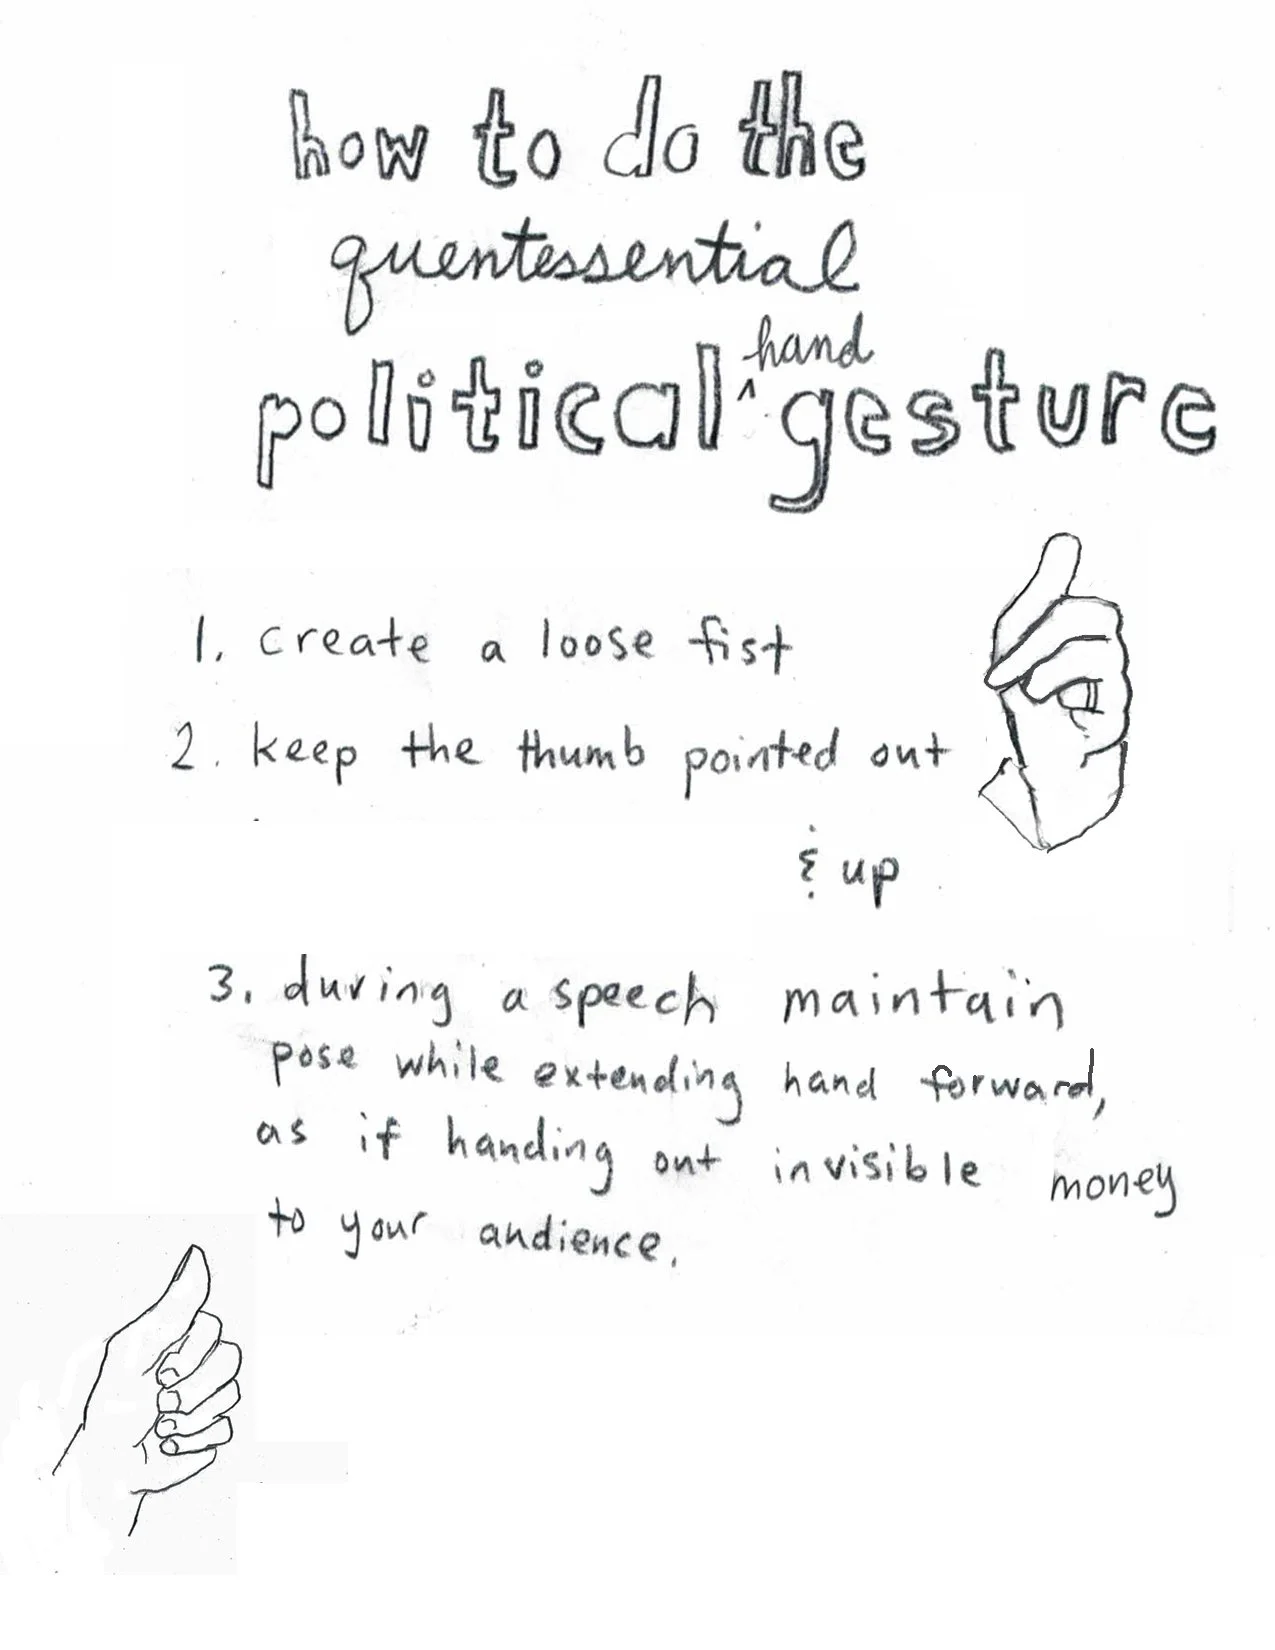 how to do the
quentessential
political ^ hand gesture
1. create a loose fist
2. keep the thumb pointed out
& up
3. during a speech maintain
pose while extending hand forward,
as if handing out invisible money
to your audience.